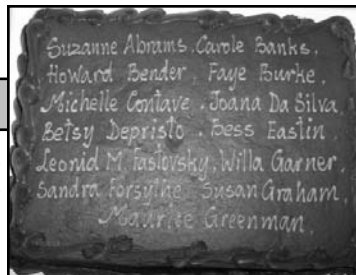 Suzanne Abrams. Carole Banks.
Howard Bender, Faye Burke.
Michelle Contave. Joana Da Silva.
Betsy Depristo. Bess Eastin.
Leonid M. Fastovsky, Willa Garner.
Sandra Forsythe. Susan Graham.
Maurice Greenman.